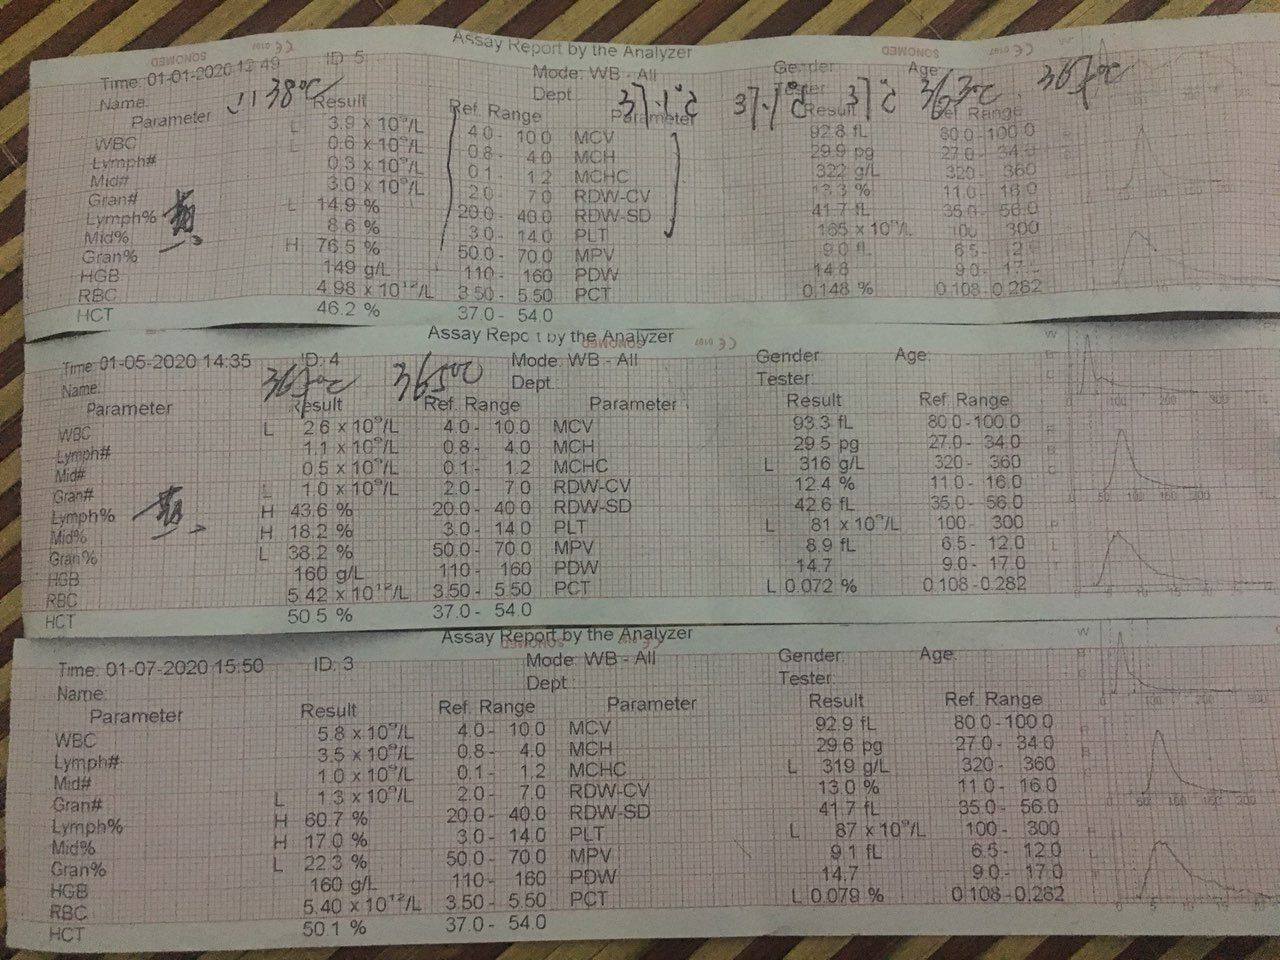 Assay Report by the Analyzer
SONOMED CE 0197 SONOMED CE 0197
Time: 01-01-2020 12:49 ID: 5 Mode: WB - All Gender: Age:
Name: 38°C Dept.: 37.1°C 37.1°C Tester 37°C 36.3°C 36.7°C
Parameter Result Ref. Range Parameter Result Ref. Range
WBC L 3.9 x 10⁹/L 4.0 - 10.0 MCV 92.8 fL 80.0-100.0
Lymph# L 0.6 x 10⁹/L 0.8 - 4.0 MCH 29.9 pg 27.0- 34.0
Mid# 0.3 x 10⁹/L 0.1 - 1.2 MCHC 322 g/L 320- 360
Gran# 3.0 x 10⁹/L 2.0 - 7.0 RDW-CV 13.3 % 11.0- 16.0
Lymph% L 14.9 % 20.0- 40.0 RDW-SD 41.7 fL 35.0- 56.0
Mid% 8.6 % 3.0 - 14.0 PLT 165 x 10⁹/L 100 300
Gran% H 76.5 % 50.0- 70.0 MPV 9.0 fL 6.5-
HGB 149 g/L 110- 160 PDW 14.8 9.0-
RBC 4.98 x 10¹²/L 3.50 - 5.50 PCT 0.148 % 0.108-0.282
HCT 46.2 % 37.0- 54.0
Assay Report by the Analyzer
SONOMED CE 0197
Time: 01-05-2020 14:35 ID: 4 Mode: WB - All Gender: Age:
Name: 36.5°C Dept.: Tester:
Parameter Result Ref. Range Parameter Result Ref. Range
WBC L 2.6 x 10⁹/L 4.0 - 10.0 MCV 93.3 fL 80.0-100.0
Lymph# 1.1 x 10⁹/L 0.8 - 4.0 MCH 29.5 pg 27.0- 34.0
Mid# 0.5 x 10⁹/L 0.1 - 1.2 MCHC L 316 g/L 320- 360
Gran# L 1.0 x 10⁹/L 2.0 - 7.0 RDW-CV 12.4 % 11.0- 16.0
Lymph% H 43.6 % 20.0- 40.0 RDW-SD 42.6 fL 35.0- 56.0
Mid% H 18.2 % 3.0 - 14.0 PLT L 81 x 10⁹/L 100- 300
Gran% L 38.2 % 50.0- 70.0 MPV 8.9 fL 6.5- 12.0
HGB 160 g/L 110- 160 PDW 14.7 9.0- 17.0
RBC 5.42 x 10¹²/L 3.50- 5.50 PCT L 0.072 % 0.108-0.282
HCT 50.5 % 37.0- 54.0
Assay Report by the Analyzer
SONOMED
Time: 01-07-2020 15:50 ID: 3 Mode: WB - All Gender: Age:
Name: Dept.: Tester:
Parameter Result Ref. Range Parameter Result Ref. Range
WBC 5.8 x 10⁹/L 4.0- 10.0 MCV 92.9 fL 80.0-100.0
Lymph# 3.5 x 10⁹/L 0.8- 4.0 MCH 29.6 pg 27.0- 34.0
Mid# 1.0 x 10⁹/L 0.1 - 1.2 MCHC L 319 g/L 320- 360
Gran# L 1.3 x 10⁹/L 2.0 - 7.0 RDW-CV 13.0 % 11.0- 16.0
Lymph% H 60.7 % 20.0- 40.0 RDW-SD 41.7 fL 35.0- 56.0
Mid% H 17.0 % 3.0- 14.0 PLT L 87 x 10⁹/L 100- 300
Gran% L 22.3 % 50.0- 70.0 MPV 9.1 fL 6.5- 12.0
HGB 160 g/L 110- 160 PDW 14.7 9.0- 17.0
RBC 5.40 x 10¹²/L 3.50- 5.50 PCT L 0.079 % 0.108-0.282
HCT 50.1 % 37.0- 54.0